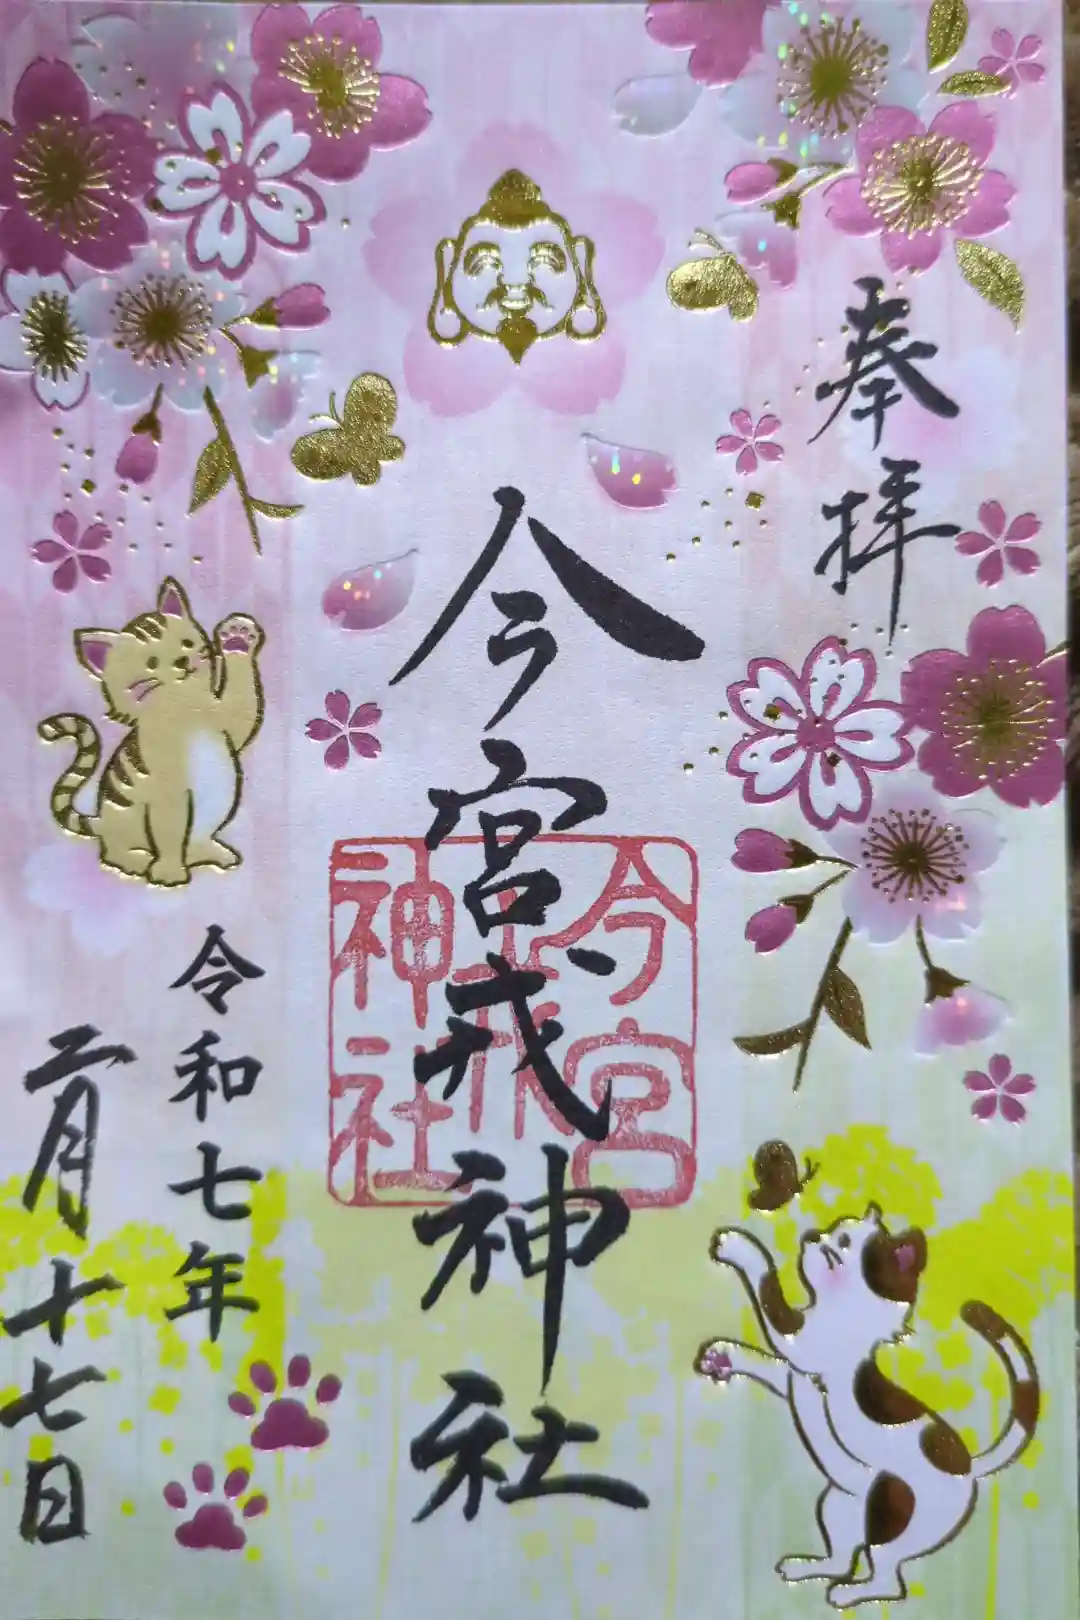 奉拝
今宮戎神社
今宮
戎
神社
令和七年
二月十七日